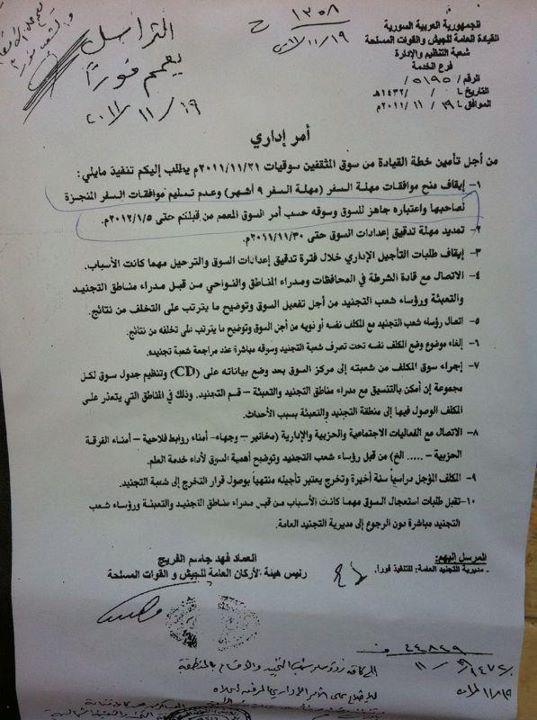 الجمهورية العربية السورية
القيادة العامة للجيش والقوات المسلحة
شعبة التنظيم والإدارة
فرع الخدمة
الرقم/ ٥١٩٥٠/
التاريخ / ٠ / ١٤٣٢هـ
الموافق ١٩ / ١١ / ٢٠١١م
١٣٥٨ ح
٢٠١١/١١/١٩
التراسل
يعمم فوراً
١٩ / ١١ / ٢٠١١
أمر إداري
من أجل تأمين خطة القيادة من سوق المثقفين سوقيات ٢٠١١/١١/٢١م يطلب إليكم تنفيذ مايلي:
١- إيقاف منح موافقات مهلة السفر (مهلة السفر ٩ أشهر) وعدم تسليم موافقات السفر المنجزة
لصاحبها واعتباره جاهز للسوق وسوقه حسب أمر السوق المعمم من قبلكم حتى ٢٠١٢/١/٥م.
٢- تمديد مهلة تدقيق إعدادات السوق حتى ٢٠١١/١١/٣٠م.
٣- إيقاف طلبات التأجيل الإداري خلال فترة تدقيق إعدادات السوق والترحيل مهما كانت الأسباب.
٤- الاتصال مع قادة الشرطة في المحافظات ومدراء المناطق والنواحي من قبل مدراء مناطق التجنيد
والتعبئة ورؤساء شعب التجنيد من أجل تفعيل السوق وتوضيح ما يترتب على التخلف من نتائج.
٥- اتصال رؤساء شعب التجنيد مع المكلف نفسه أو ذويه من أجل السوق وتوضيح ما يترتب على تخلفه من نتائج.
٦- إلغاء موضوع وضع المكلف نفسه تحت تصرف شعبة التجنيد وسوقه مباشرة عند مراجعة شعبة تجنيده.
٧- إجراء سوق المكلف من شعبته إلى مركز السوق بعد وضع بياناته على (CD) وتنظيم جدول سوق لكل
مجموعة إن أمكن بالتنسيق مع مدراء مناطق التجنيد والتعبئة – قسم التجنيد. وذلك في المناطق التي يتعذر على
المكلف الوصول فيها إلى منطقة التجنيد والتعبئة بسبب الأحداث.
٨- الاتصال مع الفعاليات الاجتماعية والحزبية والإدارية (مخاتير – وجهاء- أمناء روابط فلاحية – أمناء الفرقة
الحزبية – ..... الخ) من قبل رؤساء شعب التجنيد وتوضيح أهمية السوق لأداء خدمة العلم.
٩- المكلف المؤجل دراسياً سنة أخيرة وتخرج يعتبر تأجيله منتهياً بوصول قرار التخرج إلى شعبة التجنيد.
١٠- تقبل طلبات استعجال السوق مهما كانت الأسباب من قبل مدراء مناطق التجنيد والتعبئة ورؤساء شعب
التجنيد مباشرة دون الرجوع إلى مديرية التجنيد العامة.
العماد فهد جاسم الفريج
رئيس هيئة الأركان العامة للجيش و القوات المسلحة
المرسل إليهم:
- مديرية التجنيد العامة: للتنفيذ فوراً.